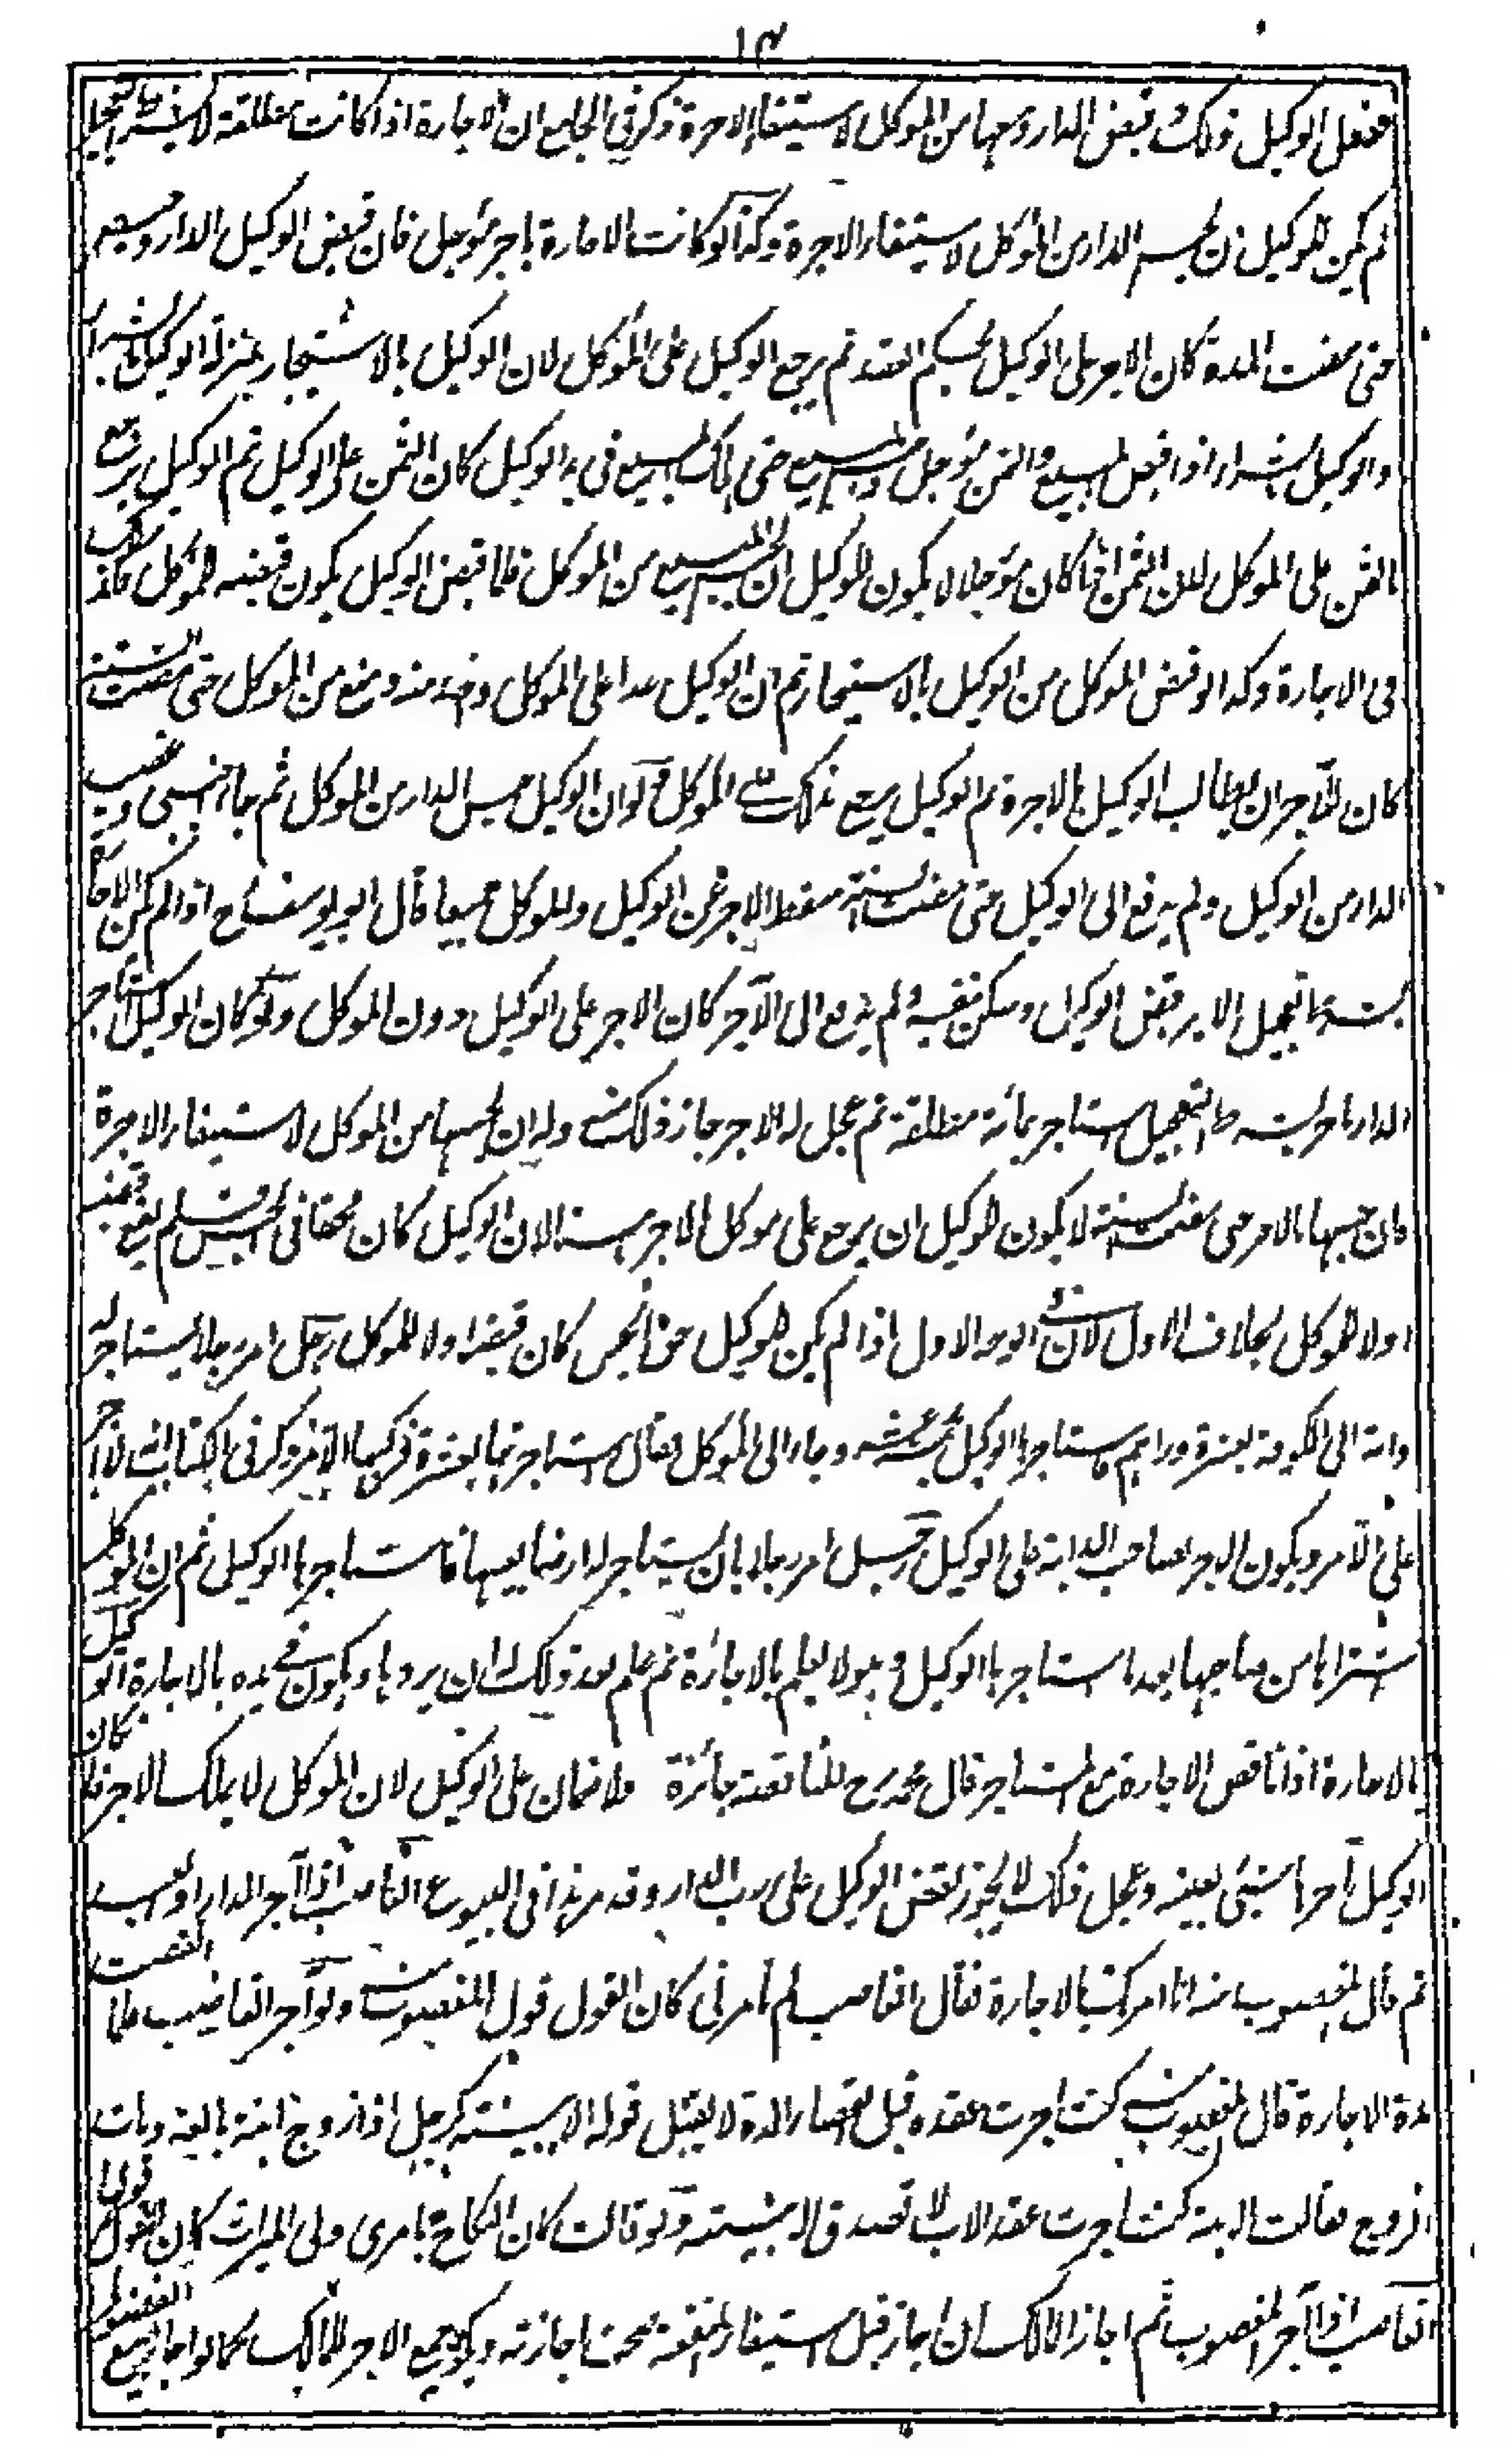 ١٣
ففعل الوكيل ذلك وقبض الدار وحبسها من الموكل لاستيفاء الاجرة ذكر في الجامع ان الاجارة اذا كانت مطلقة لا يشترط التعجيل
لم يكن للوكيل ان يحبس الدار من الموكل لاستيفاء الاجرة وكذا لو كانت الاجارة باجر مؤجل فان قبض الوكيل الدار وحبسها
حتى مضت المدة كان الاجر على الوكيل بحكم العقد ثم يرجع الوكيل على الموكل لان الوكيل بالاستيجار بمنزلة الوكيل بالشراء
والوكيل بالشراء اذا قبض المبيع والثمن مؤجل وحبس المبيع حتى هلك المبيع في يد الوكيل كان الثمن على الوكيل ثم الوكيل يرجع
بالثمن على الموكل لان الثمن اذا كان مؤجلا لا يكون للوكيل ان يحبس المبيع من الموكل فاذا قبض الوكيل يكون قبضه للموكل فكذلك
في الاجارة وكذا لو قبض الموكل من الوكيل بالاستيجار ثم ان الوكيل عدا على الموكل واخذه منه ومنع من الموكل حتى مضت السنة
كان للآجر ان يطالب الوكيل بالاجرة ثم الوكيل يرجع بذلك على الموكل ولو ان الوكيل حبس الدار من الموكل ثم جاء اجنبي وغصب
الدار من الوكيل ولم يدفع الى الوكيل حتى مضت السنة سقط الاجر عن الوكيل والموكل جميعا قال ابو يوسف رح اذا لم تكن الاجارة
بشرط تعجيل الاجر فقبض الوكيل وسكن بنفسه ولم يدفع الى الآجر كان الاجر على الوكيل دون الموكل ولو كان الوكيل استاجر
الدار باجر بشرط التعجيل استاجر بمائة مطلقة ثم عجل له الاجر جاز ذلك منه وله ان يحبسها من الموكل لاستيفاء الاجرة
فان حبسها بالاجر حتى مضت السنة لا يكون للوكيل ان يرجع على موكل الاجر لان الوكيل كان محقا في الحبس فلم يقع قبضه
اولا للموكل بخلاف الاول لان في الوجه الاول اذا لم يكن للوكيل حق الحبس كان قبضه اولا للموكل رجل امر رجلا ليستاجر له
دابة الى الكوفة بعشرة دراهم فاستاجرها الوكيل بخمسة عشر وجاء الى الموكل فقال استاجرتها بعشرة فركبها الآمر ذكر في الكتاب انه لا اجر
على الآمر ويكون الاجر لصاحب الدابة على الوكيل رجل امر رجلا بان يستاجر له ارضا بعينها فاستاجرها الوكيل ثم ان الموكل
اشتراها من صاحبها بعد ما استاجرها الوكيل وهو لا يعلم بالاجارة ثم علم بعد ذلك ان يردها ويكون في يده بالاجارة الوكيل
بالاجارة اذا ناقض الاجارة مع المستاجر قال محمد رح المناقضة جائزة ولا ضمان على الوكيل لان الموكل لا يملك الاجر فان كان
الوكيل آجرها بشيء بعينه وعجل ذلك لا يجوز نقض الوكيل على رب الدار وقد مر هذا في البيوع الغاصب اذا آجر الدار
ثم قال المغصوب منه انا امرتك بالاجارة فقال الغاصب لم تامرني كان القول قول المغصوب منه ولو آجر الغاصب فلما انقضت
مدة الاجارة قال المغصوب منه كنت اجزت عقده قبل انقضاء المدة لا يقبل قوله الا ببينة كرجل اذا زوج ابنته بالغة ومات
الزوج فقالت البنة كنت اجزت عقد الاب لا تصدق الا ببينة ولو قالت كان النكاح بامري ولي الميراث كان القول قولها
الغاصب اذا آجر المغصوب ثم اجاز المالك ان اجاز قبل استيفاء المنفعة صحت اجازته ويكون جميع الاجر للمالك كما لو اجاز بيع الفضولي